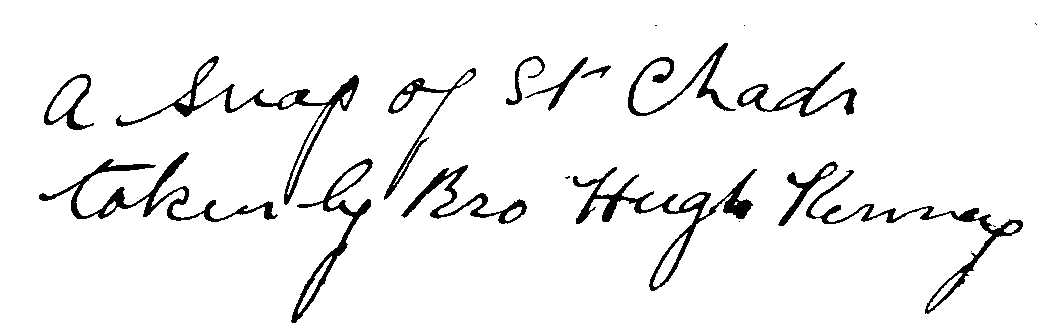 A snap of St Chads
taken by Bro Hugh Kenney